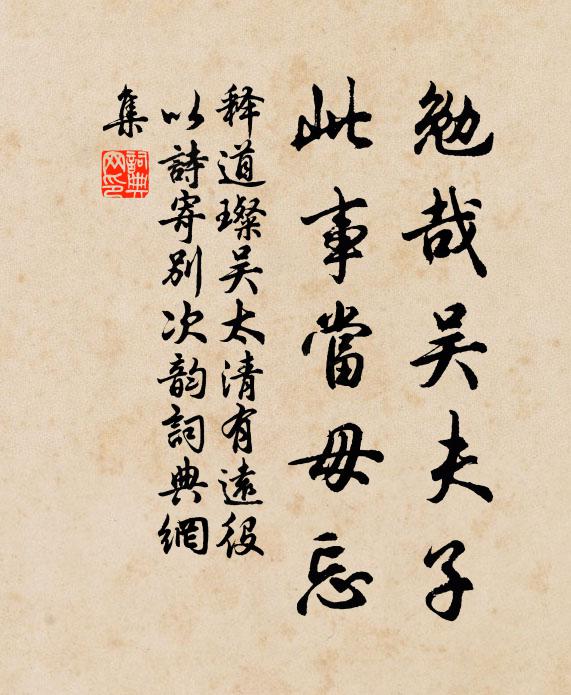 勉哉吴夫子
此事當毋忘
释道璨吴太清有遠役
以詩寄别次韵詞典網
集
詞典網印